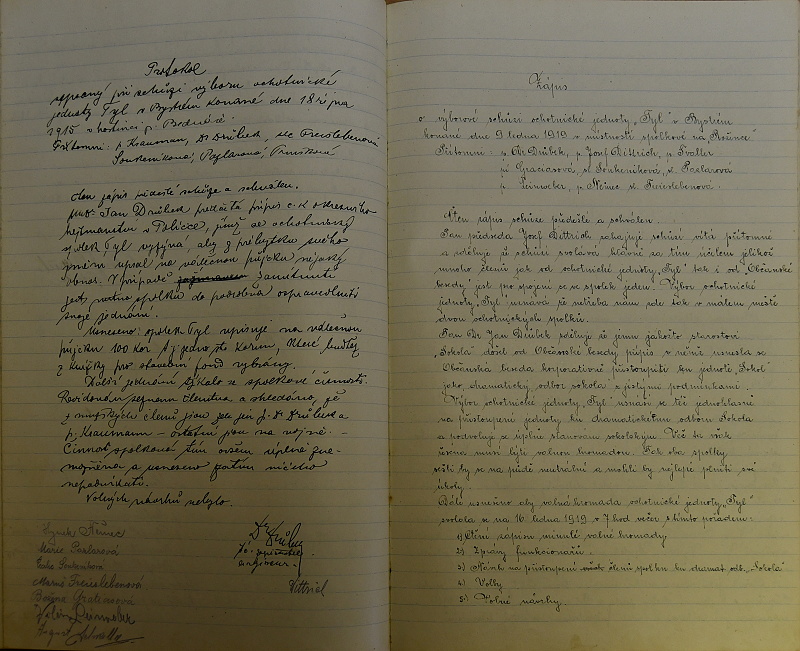 Protokol
sepsaný při schůzi výboru ochotnické
jednoty Tyl v Bystrém konané dne 18 října
1915 v hostinci p.
Přítomni: p. Krauman, Dr Drůbek, slč. Freislebenova
Soukeníková, Pazlarová,
čten zápis předešlé schůze a schválen.
Jan Drůbek předčítá přípis c. k. okresního
hejtmanství v Poličce, jímž se ochotnický
spolek Tyl vyzývá, aby z přebytku svého
jmění upsal na válečnou půjčku nějaký
obnos. V případě zamítnutí
jest nutno spolku do podrobna ospravedlniti
svoje jednání.
Usneseno: spolek Tyl upisuje na válečnou
půjčku 100 Kor. t.j. jedno sto korun, které buďtež
z knížky pro stavební fond vybrány.
Další jednání týkalo se spolkové činnosti.
Revidován seznam členstva a shledáno, že
z mužských členů jsou zde jen p. Dr Drůbek a
p. Kraumann – ostatní jsou na vojně. –
Činnost spolková tím ovšem úplně zne-
možněna a usneseno zatím ničeho
nepodnikati.
Volných návrhů nebylo.
Hynek Němec
Marie Pazlarová
Soukeníková
Marie Freislebenová
Božena Graciasová
August
Dr Drůbek
Dittrich
Zápis
o výborové schůzi ochotnické jednoty „Tyl" v Bystrém
konané dne 9 ledna 1919 v místnosti spolkové na „Rounce"
Přítomni: p. Dr. Drůbek, p. Josef Dittrich, p. Tvaller
pí Graciasová, sl. Soukeníková, sl. Pazlarová
p. p. Němec sl. Freislebenova.
Čten zápis schůze předešlé a schválen.
Pan předseda Josef Dittrich zahajuje schůzi vítá přítomné
a sděluje že schůzi svolává hlavně za tím účelem jelikož
mnoho členů jak od ochotnické jednoty „Tyl" tak i od „Občanské
besedy" jest pro spojení se ve spolek jeden. Výbor ochotnické
jednoty „Tyl" uznává že netřeba nám zde tak v malém městě
dvou ochotnických spolků.
Pan Dr. Jan Drůbek sděluje že jemu jakožto starostovi
„Sokola" došel od Občanské besedy přípis v němž usnesla se
Občanská beseda korporativně přistoupiti ku jednotě „Sokol"
jako „dramatický odbor sokola" s jistými podmínkami.
Výbor ochotnické jednoty „Tyl" usnáší se též jednohlasně
na přistoupení jednoty ku dramatickému odboru Sokola
a podvoluje se úplně stanovám sokolským. Věc tu však
řešena musí býti valnou hromadou. Tak oba spolky
sešly by se na půdě neutrální a mohli by nejlépe plniti své
úkoly.
Dále usneseno aby valná hromada ochotnické jednoty „Tyl"
svolala se na 16. ledna 1919 v 7 hod večer s tímto pořadem:
1) Čtení zápisu minulé valné hromady
2) Zprávy funkcionářů.
3) Návrh na přistoupení členů spolku ku dramat. odb. „Sokola"
4) Volby
5) Volné návrhy.